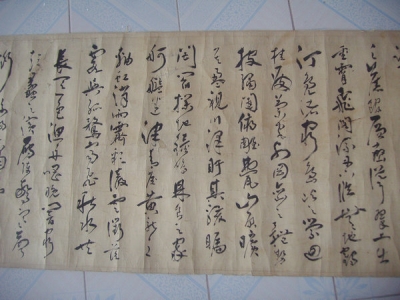 之舊館層巒聳翠上出
重霄飛閣流丹下臨無地鶴
汀鳧渚窮島嶼之縈迴
桂殿蘭宮列岡巒之體勢
披繡闥俯雕甍山原曠
其盈視川澤盱其駭矚
閭閻撲地鐘鳴鼎食之家
舸艦迷津青雀黃龍之
軸虹銷雨霽彩徹雲衢落
霞與孤鶩齊飛秋水共
長天一色漁舟唱晚響窮
彭蠡之濱雁陣驚寒聲